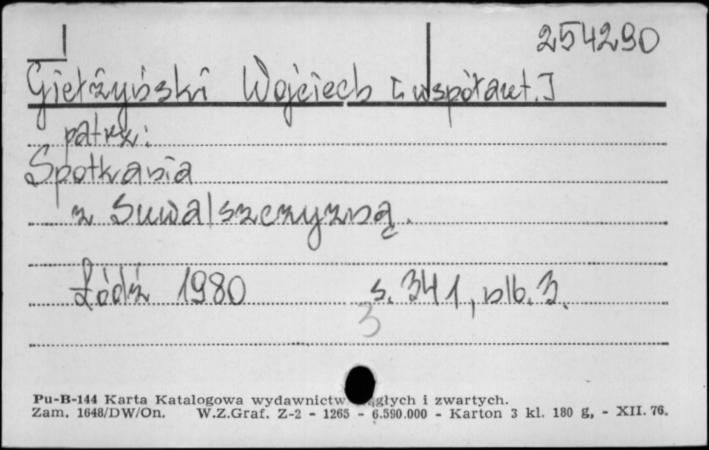 254290
Giełżyński Wojciech [współaut.]
patrz:
Spotkania
z Suwalszczyzną.
Łódź 1980 s. 341, nlb. 3.
3
Pu-B-144 Karta Katalogowa wydawnictw ciągłych i zwartych.
Zam. 1648/DW/On. W.Z.Graf. Z-2 - 1265 - 6.590.000 - Karton 3 kl. 180 g, - XII. 76.